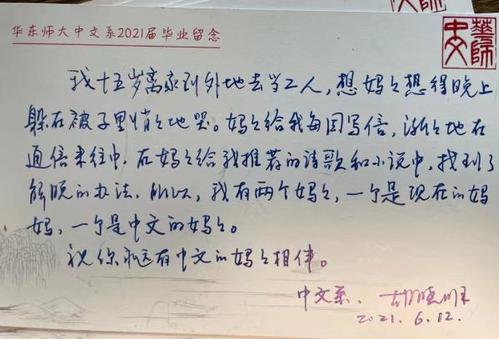 华东师大中文系2021届毕业留念
華師
中文
我十五岁离家到外地去当工人,想妈々想得晚上
躲在被子里悄々地哭。妈々给我每周写信,渐々地在
通信来往中,在妈々给我推荐的诗歌和小说中,找到了
解脱的办法。所以,我有两个妈々,一个是现在的妈
妈,一个是中文的妈々。
祝你永远有中文的妈々相伴。
中文系 胡晓明
2021.6.12.